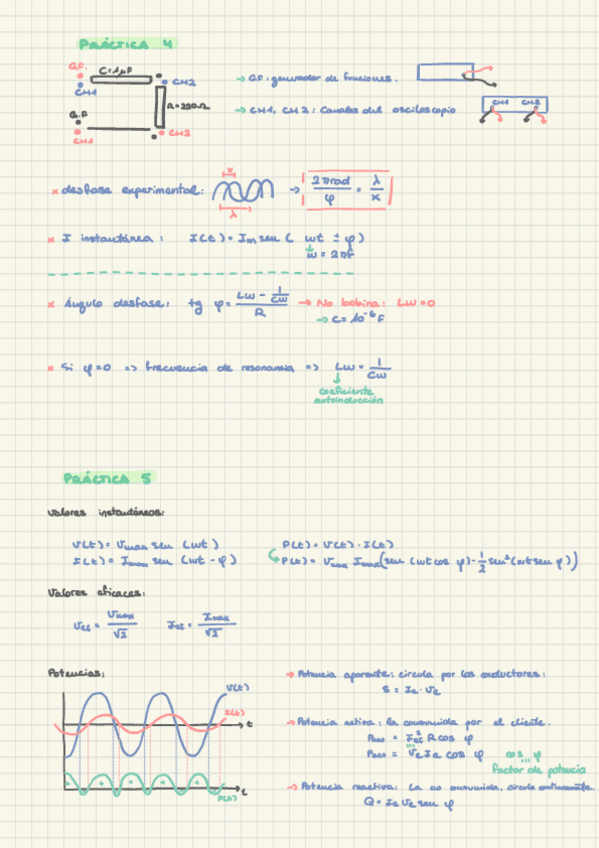 PRÁCTICA 4
G.F. C=1μF
CH1 CH2
→ G.F: generador de funciones.
R=220Ω
→ CH1, CH2: Canales del osciloscopio
CH1 CH2
G.F
CH1 CH2
x desfase experimental: x λ → 2πrad/φ = λ/x
x I instantánea: I(t) = Im sen ( wt ± φ)
w = 2πf
x Ángulo desfase: tg φ = (Lw - 1/Cw)/R → No bobina: Lw=0
→ C=10⁻⁶ F
x Si φ=0 => frecuencia de resonancia => Lw = 1/Cw
coeficiente
autoinducción
PRÁCTICA 5
Valores instantáneos:
V(t) = Vmax sen (wt)
I(t) = Imax sen (wt - φ)
P(t) = V(t) · I(t)
P(t) = Vmax Imax (sen (wt cos φ) - 1/2 sen² (wt sen φ))
Valores eficaces:
Vef = Vmax/√2 Ief = Imax/√2
Potencias:
V(t)
I(t)
t
P(t)
t
→ Potencia aparente: circula por los conductores:
S = Ie · Ve
→ Potencia activa: la consumida por el cliente.
Pact = Ief² R cos φ
Pact = Ve Ie cos φ cos φ
factor de potencia
→ Potencia reactiva: La no consumida, circula continuamente.
Q = Ie Ve sen φ